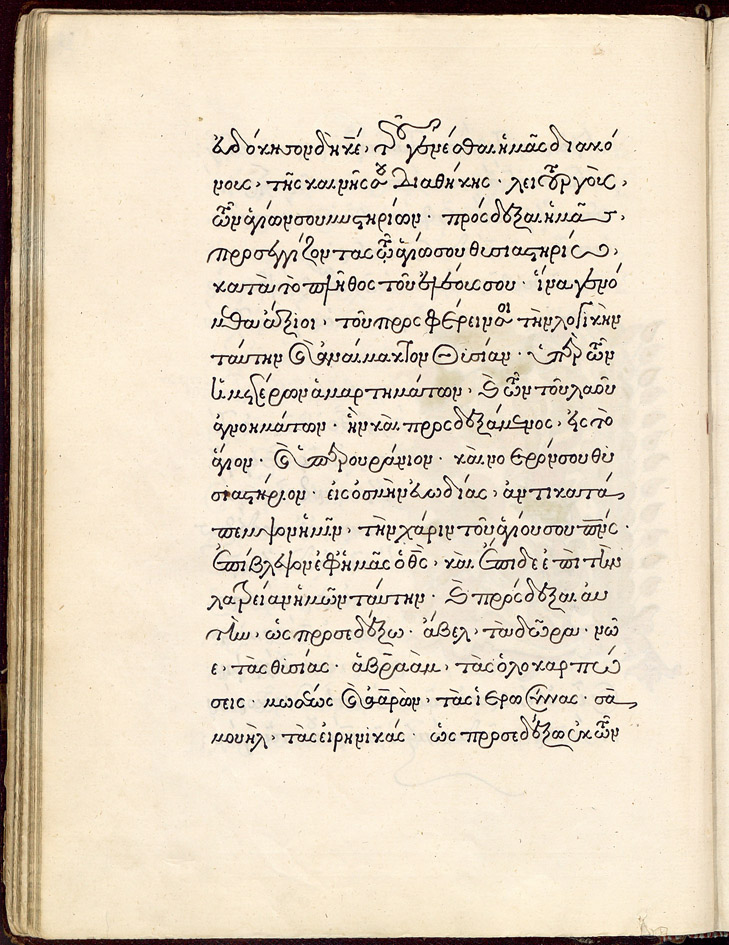 εὐδόκησον δὴ κε, τοῦ γενέσθαι ἡμᾶς διακό
νους, τῆς καινῆς σου διαθήκης · λειτουργοὺς,
τῶν ἁγίων σου μυστηρίων · πρόσδεξαι ἡμᾶς,
προσεγγίζοντας τῷ ἁγίῳ σου θυσιαστηρίῳ,
κατὰ τὸ πλῆθος τοῦ ἐλέους σου · ἵνα γενώ
μεθα ἄξιοι, τοῦ προσφέρειν σοι τὴν λογικὴν
ταύτην καὶ ἀναίμακτον θυσίαν · ὑπὲρ τῶν
ἡμετέρων ἁμαρτημάτων, καὶ τῶν τοῦ λαοῦ
ἀγνοημάτων · ἣν καὶ προσδεξάμενος, εἰς τὸ
ἅγιον · καὶ ὑπερουράνιον · καὶ νοερόν σου θυ
σιαστήριον · εἰς ὀσμὴν εὐωδίας, ἀντικατά
πεμψον ἡμῖν, τὴν χάριν τοῦ ἁγίου σου πνς ·
Ἐπίβλεψον ἐφ' ἡμᾶς ὁ θς, καὶ ἔπιδε ἐπὶ τὴν
λατρείαν ἡμῶν ταύτην · καὶ πρόσδεξαι αὐ
τὴν, ὡς προσεδέξω · ἄβελ, τὰ δῶρα · νῶ
ε, τὰς θυσίας · ἀβραὰμ, τὰς ὁλοκαρπώ
σεις · μωσέως καὶ ἀαρὼν, τὰς ἱερωσύνας · σα
μουὴλ, τὰς εἰρηνικάς · ὡς προσεδέξω ἐκ τῶν